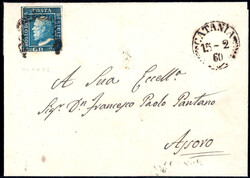 POSTA
CATANIA
15 - 2
60
A Sua Eccell.a
Sig.r D.n Francesco Paolo Pantano
Asaro